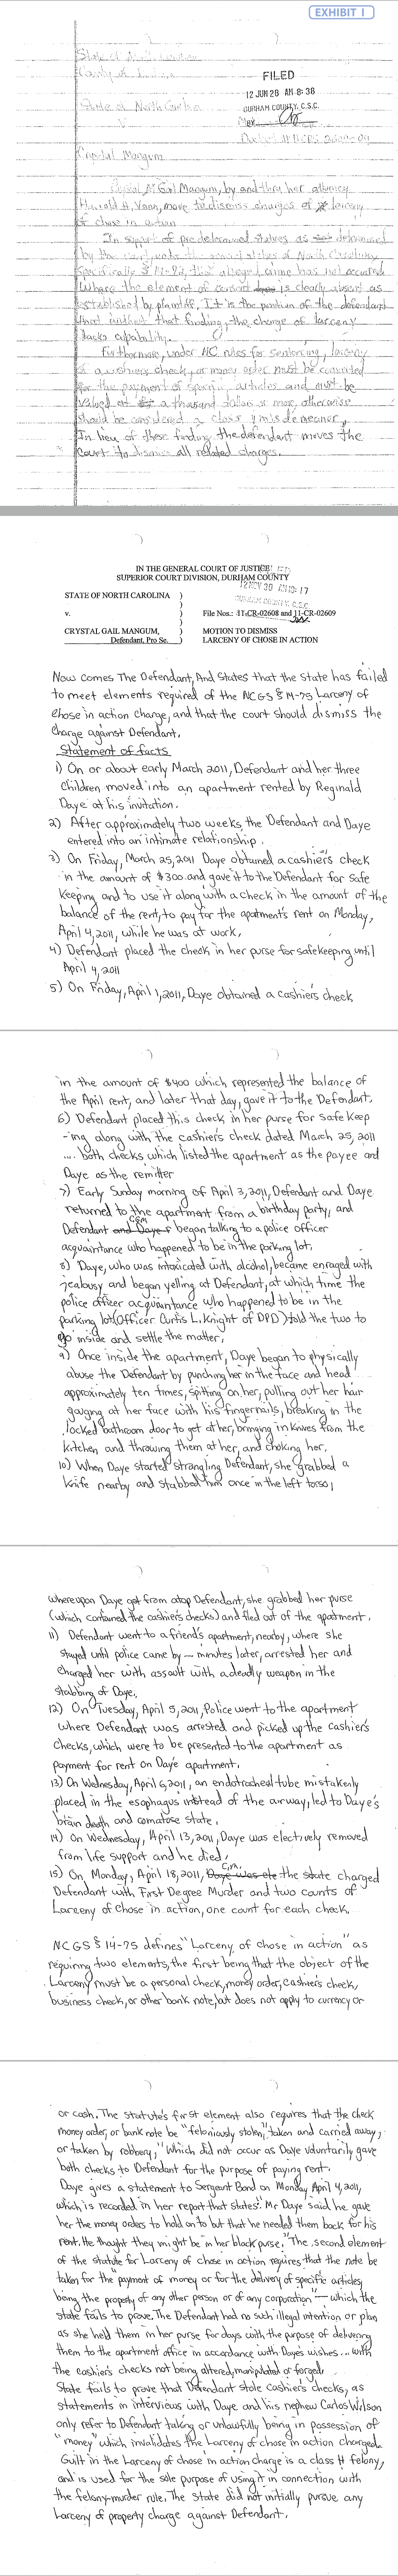 EXHIBIT 1
State of North Carolina
County of
FILED
12 JUN 28 AM 8:38
State of North Carolina
DURHAM COUNTY, C.S.C.
V
Crystal Mangum
Crystal Gail Mangum, by and thru her attorney
H. Vann, move to dismiss charges of larceny
of chose in action
In support of predetermined statues as determined
by the court under the general statues of North Carolina
specifically § 14-75, the alleged crime has not occured.
Where the element of consent is clearly absent as
established by plaintiff, It is the position of the defendant
that that finding, the charge of larceny
lacks capability.
Furthermore, under NC rules for sentencing, larceny
of a cashiers check, or money order must be converted
for the payment of specific articles and must be
valued at a thousand dollars or more, otherwise
should be considered a class 1 misdemeanor.
In lieu of these finding the defendant moves the
Court to dismiss all related charges.
IN THE GENERAL COURT OF JUSTICE
SUPERIOR COURT DIVISION, DURHAM COUNTY
12 NOV 30 AM 10:17
STATE OF NORTH CAROLINA )
DURHAM COUNTY, C.S.C.
v. ) File Nos.: 11-CR-02608 and 11-CR-02609
CRYSTAL GAIL MANGUM, ) MOTION TO DISMISS
Defendant, Pro Se. ) LARCENY OF CHOSE IN ACTION
Now comes The Defendant, And States that the State has failed
to meet elements required of the NCGS § 14-75 Larceny of
Chose in action charge, and that the court should dismiss the
charge against Defendant.
Statement of facts
1) On or about early March 2011, Defendant and her three
children moved into an apartment rented by Reginald
Daye at his invitation.
2) After approximately two weeks the Defendant and Daye
entered into an intimate relationship.
3) On Friday, March 25, 2011 Daye obtained a cashier's check
in the amount of $300 and gave it to the Defendant for safe
keeping and to use it along with a check in the amount of the
balance of the rent, to pay for the apartment's rent on Monday,
April 4, 2011, while he was at work.
4) Defendant placed the check in her purse for safekeeping until
April 4, 2011
5) On Friday, April 1, 2011, Daye obtained a cashier's check
in the amount of $400 which represented the balance of
the April rent, and later that day, gave it to the Defendant.
6) Defendant placed this check, in her purse for safe keep
-ing along with the cashier's check dated March 25, 2011
... both checks which listed the apartment as the payee and
Daye as the remitter
7) Early Sunday morning of April 3, 2011, Defendant and Daye
returned to the apartment from a birthday party, and
CGM
Defendant and Daye began talking to a police officer
acquaintance who happened to be in the parking lot.
8) Daye, who was intoxicated with alcohol, became enraged with
jealousy and began yelling at Defendant, at which time the
police officer acquaintance who happened to be in the
parking lot (Officer Curtis L. Knight of DPD) told the two to
go inside and settle the matter.
9) Once inside the apartment, Daye began to physically
abuse the Defendant by punching her in the face and head
approximately ten times, spitting on her, pulling out her hair
gauging at her face with his fingernails, breaking in the
locked bathroom door to get at her, bringing in knives from the
kitchen and throwing them at her, and choking her.
10) When Daye started strangling Defendant, she grabbed a
knife nearby and stabbed him once in the left torso,
whereupon Daye got from atop Defendant, she grabbed her purse
(which contained the cashier's checks) and fled out of the apartment.
11) Defendant went to a friend's apartment, nearby, where she
stayed until police came by — minutes later, arrested her and
charged her with assault with a deadly weapon in the
stabbing of Daye.
12) On Tuesday, April 5, 2011, Police went to the apartment
where Defendant was arrested and picked up the cashier's
checks, which were to be presented to the apartment as
payment for rent on Daye apartment.
13) On Wednesday, April 6, 2011, an endotracheal tube mistakenly
placed in the esophagus instead of the airway, led to Daye's
brain death and comatose state.
14) On Wednesday, April 13, 2011, Daye was electively removed
from life support and he died.
C.G.M.
15) On Monday, April 18, 2011, Daye was ele the state charged
Defendant with First Degree Murder and two counts of
Larceny of Chose in action, one count for each check.
NCGS § 14-75 defines "Larceny of chose in action" as
requiring two elements, the first being that the object of the
Larceny must be a personal check, money order, cashier's check,
business check, or other bank note, but does not apply to currency or
or cash. The statute's first element also requires that the check
money order, or bank note be "feloniously stolen," taken and carried away,
or taken by robbery," Which did not occur as Daye voluntarily gave
both checks to Defendant for the purpose of paying rent.
Daye gives a statement to Sergeant Bond on Monday April 4, 2011,
which is recorded in her report that states: "Mr Daye said he gave
her the money orders to hold on to but that he needed them back for his
rent. He thought they might be in her black purse." The second element
of the statute for Larceny of chose in action requires that the note be
taken for the "payment of money or for the delivery of specific articles
being the property of any other person or of any corporation" — which the
state fails to prove. The Defendant had no such illegal intention or plan
as she held them in her purse for days with the purpose of delivering
them to the apartment office in accordance with Daye's wishes ... with
the cashier's checks not being altered, manipulated or forged.
State fails to prove that Defendant stole Cashier's checks, as
statements in interviews with Daye and his nephew Carlos Wilson
only refer to Defendant taking or unlawfully being in possession of
"money" which invalidates the Larceny of chose in action charged.
Guilt in the Larceny of chose in action charge is a class H felony,
and is used for the sole purpose of using it in connection with
the felony-murder rule. The State did not initially pursue any
Larceny of property charge against Defendant.